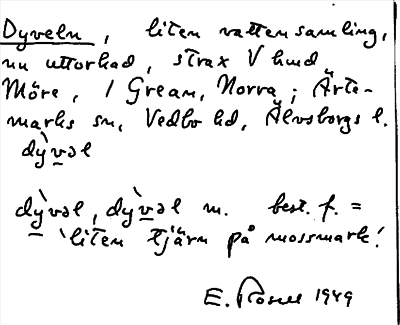 Dyveln, liten vattensamling,
nu uttorkad, strax V
Möre, / Grean, Norra; Ärte-
marks sn, Vedbo hd, Älvsborgs l.
dỳvəl
dỳvəl, dỳvəl m. best. f. =
'liten tjärn på mossmark'.
E. Rosell 1949